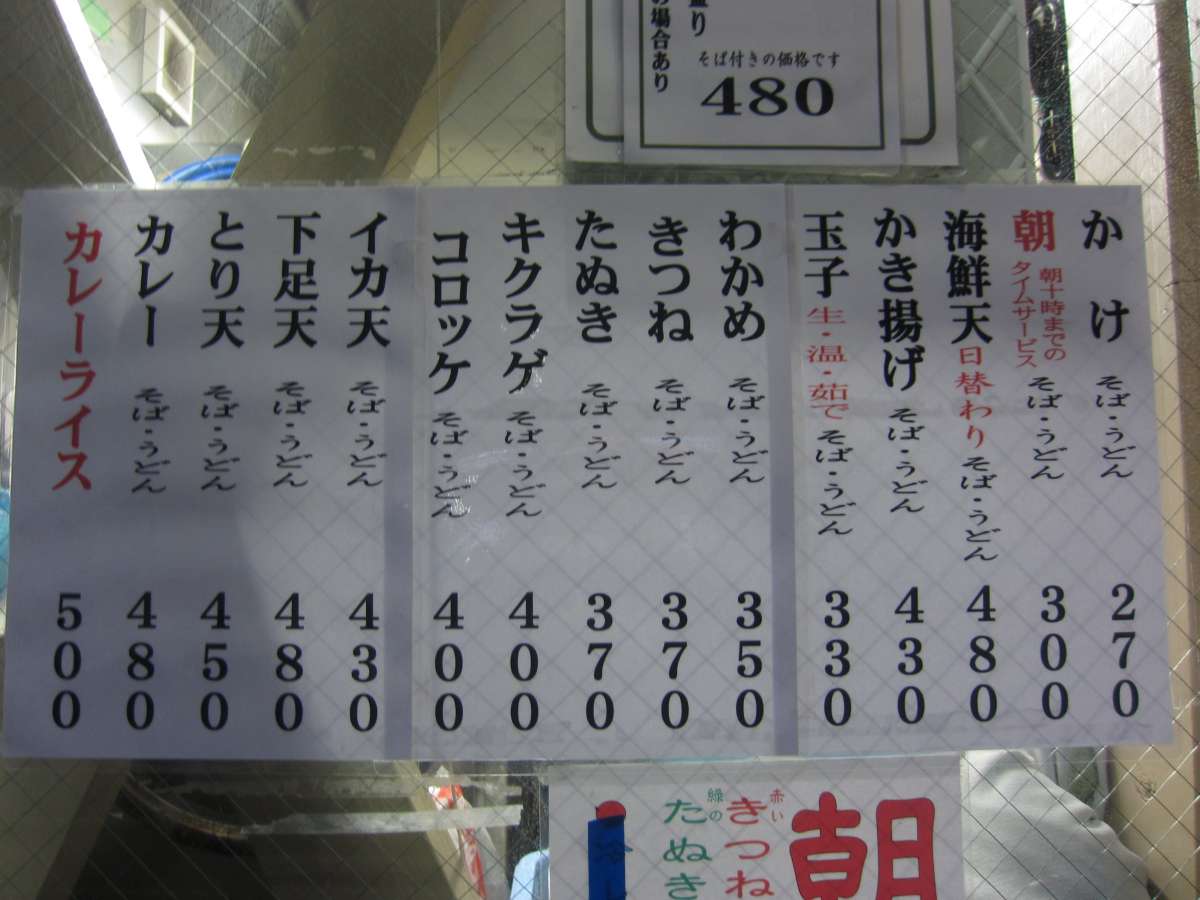 盛り
の場合あり
そば付きの価格です
480
かけ そば・うどん 270
朝 朝十時までの
タイムサービス
そば・うどん 300
海鮮天 日替わり そば・うどん 480
かき揚げ そば・うどん 430
玉子 生・温・茹で そば・うどん 330
わかめ そば・うどん 350
きつね そば・うどん 370
たぬき そば・うどん 370
キクラゲ そば・うどん 400
コロッケ そば・うどん 400
イカ天 そば・うどん 430
下足天 そば・うどん 480
とり天 そば・うどん 450
カレー そば・うどん 480
カレーライス 500
朝
赤い
きつね
緑の
たぬき